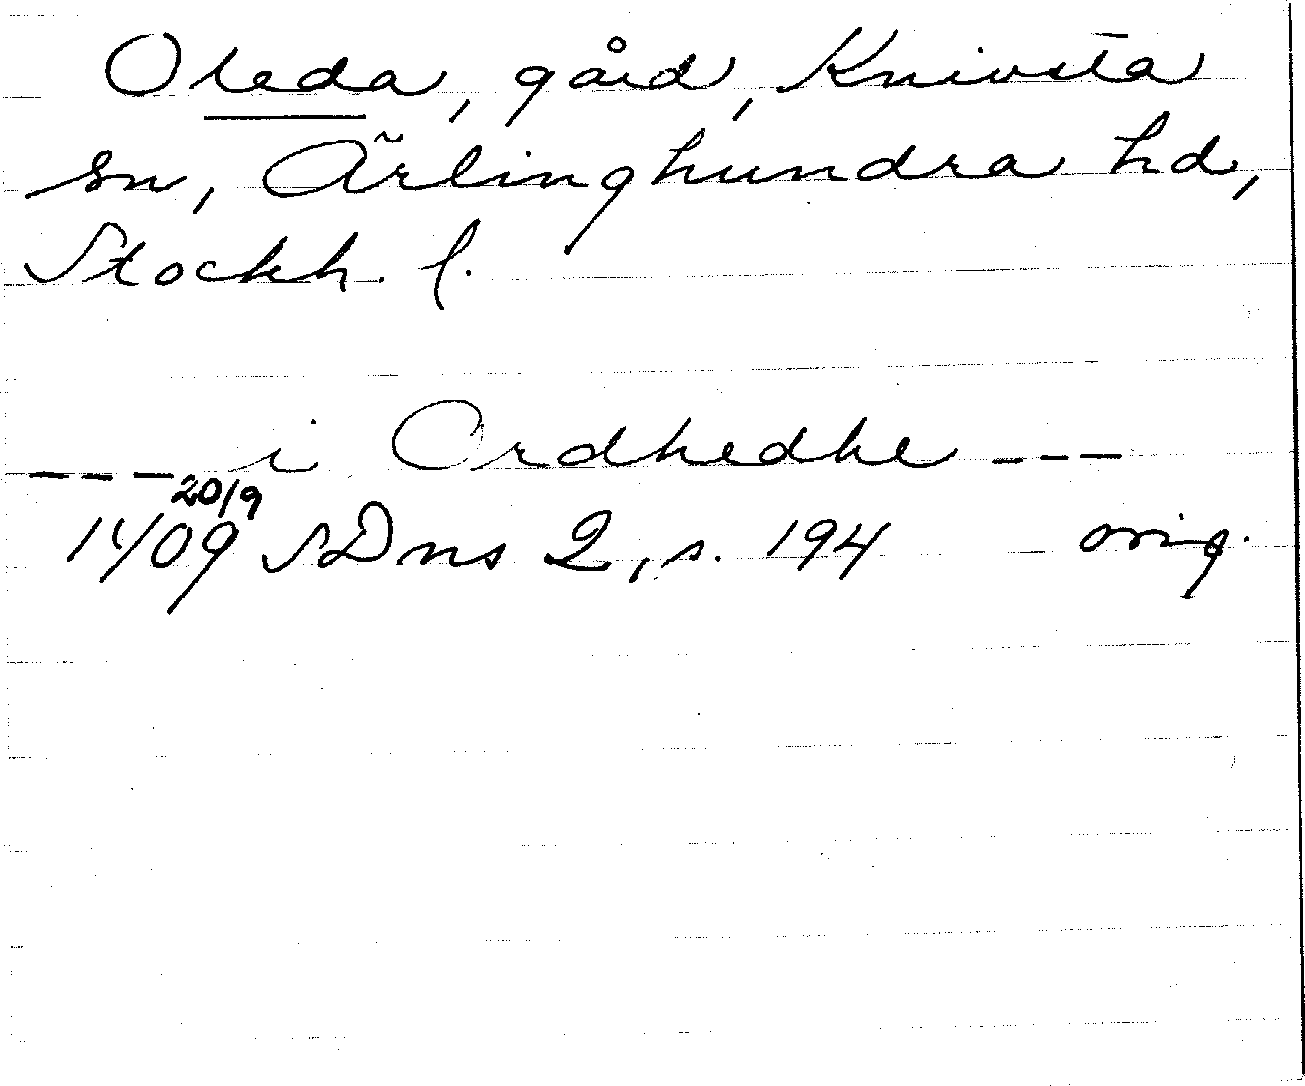 Oleda, gård, Knivsta
sn, Ärlinghundra hd,
Stockh. l.
--- i Ordhedhe ---
20/9
1409 SDns 2, s. 194 orig.